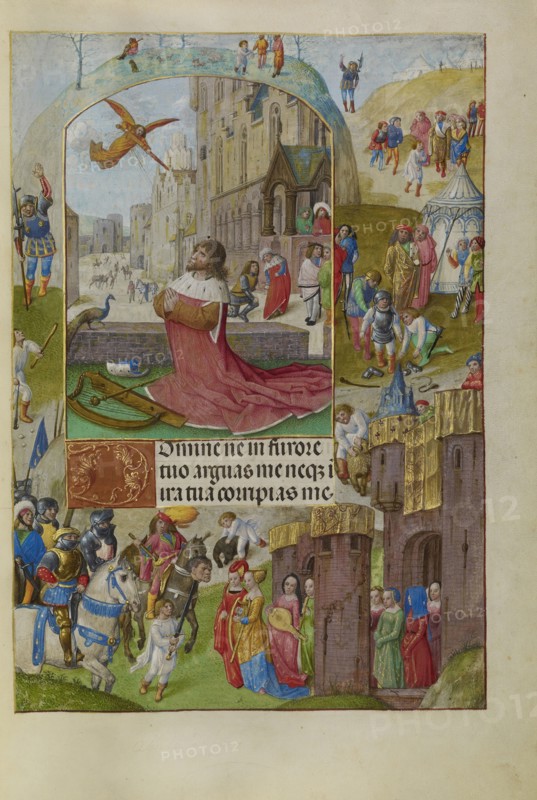 PHOTO12
PHOTO12
PHOTO12
PHOTO12
PHOTO12
DOmine ne in furore
tuo arguas me neqz i
ira tua corripias me.
PHOTO12
PHOTO12
PHOTO12
PHOTO12